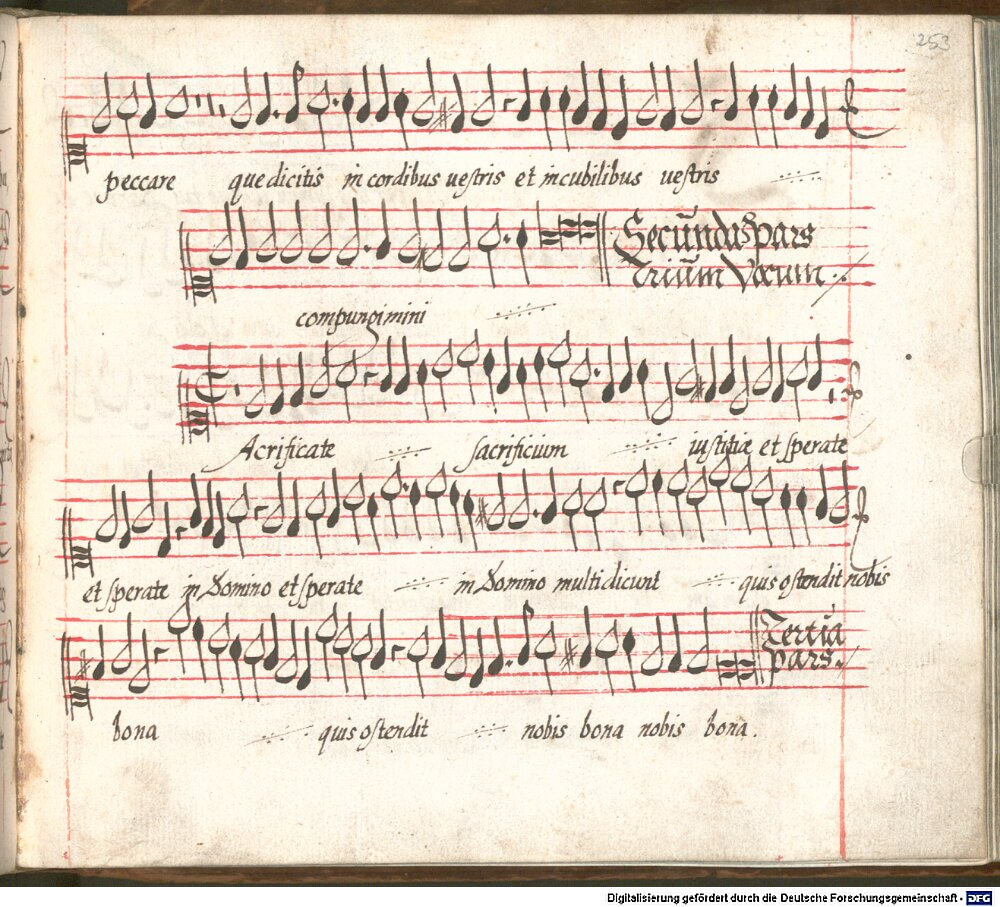 253
peccare que dicitis in cordibus vestris et in cubilibus vestris
Secunda pars
Trium Vocum
compungimini
Acrificate sacrificium iustitiæ et sperate
et sperate in Domino et sperate in Domino multi dicunt quis ostendit nobis
Tertia
pars.
bona quis ostendit nobis bona nobis bona.
Digitalisierung gefördert durch die Deutsche Forschungsgemeinschaft - DFG